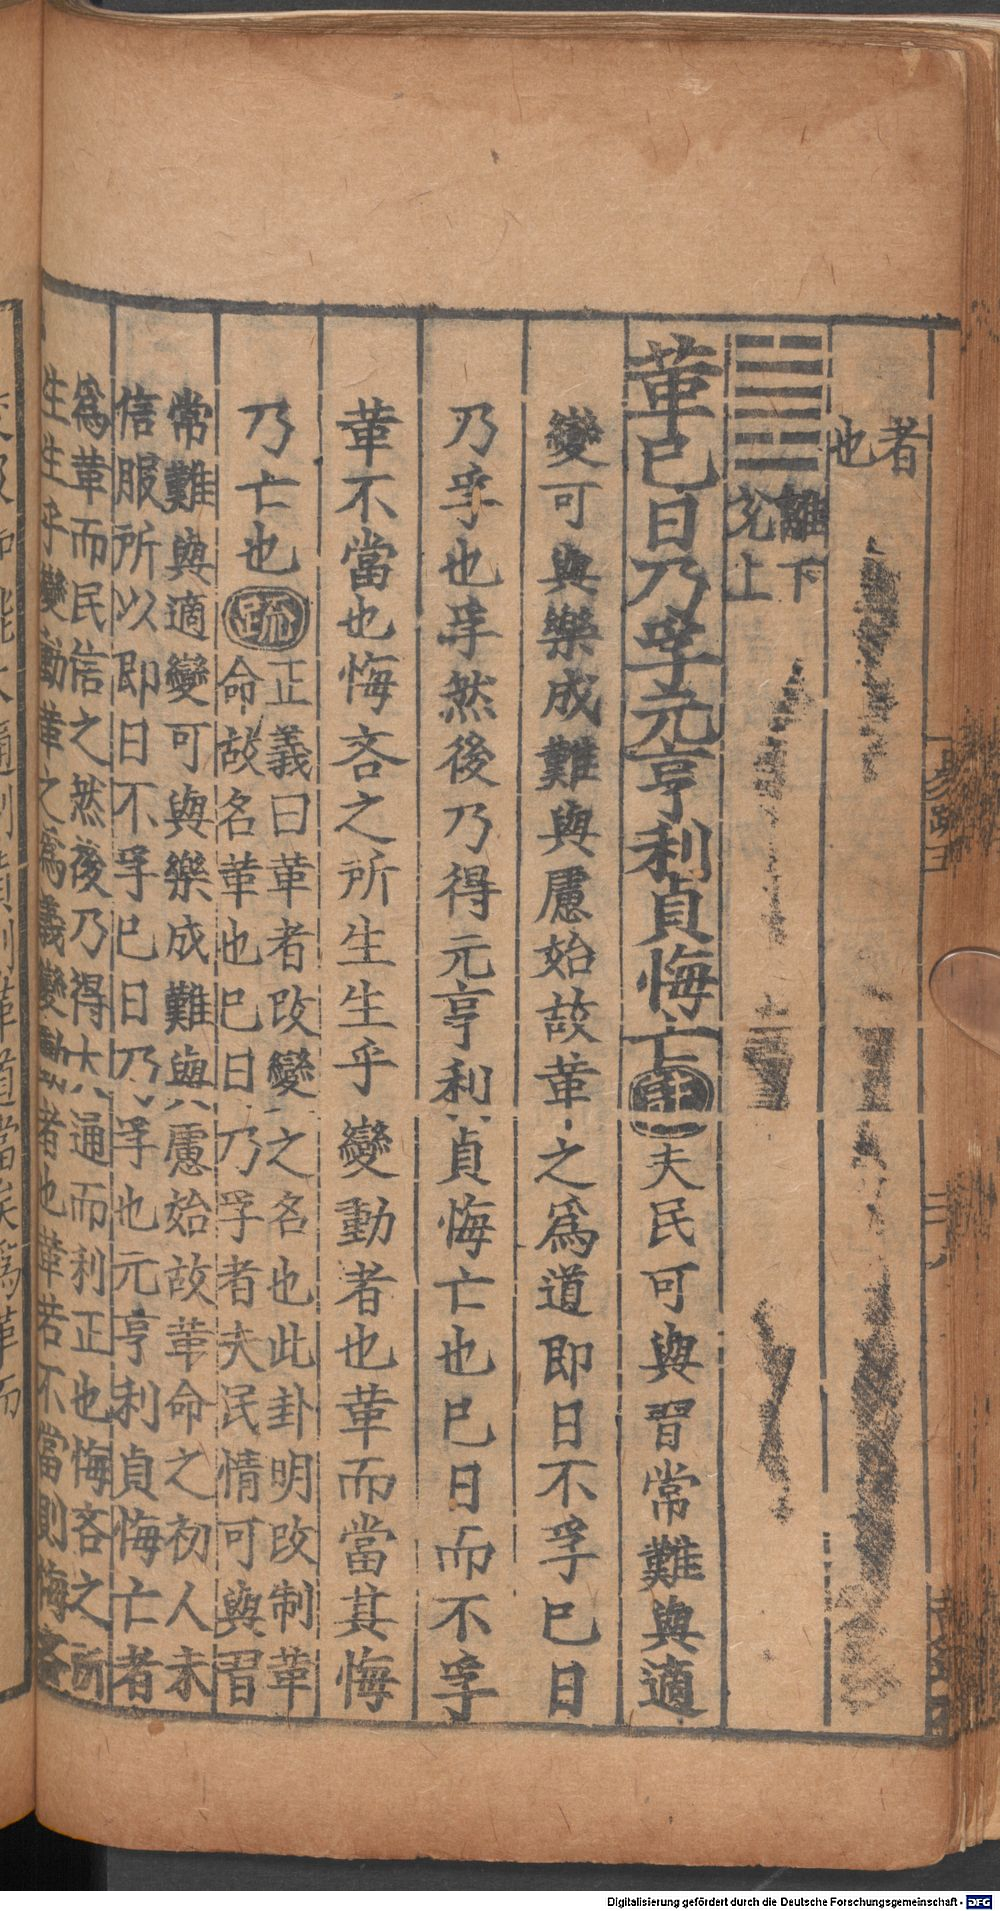 者
也
離下
兌上
革巳日乃孚元亨利貞悔亡註夫民可與習常難與適
變可與樂成難與慮始故革之爲道即日不孚巳日
乃孚也孚然後乃得元亨利貞悔亡也巳日而不孚
革不當也悔吝之所生生乎變動者也革而當其悔
乃亡也疏
正義曰革者改變之名也此卦明改制革
命故名革也巳日乃孚者夫民情可與習
常難與適變可與樂成難與慮始故革命之初人未
信服所以即日不孚巳日乃孚也元亨利貞悔亡者
爲革而民信之然後乃得大通而利正也悔吝之所
生生乎變動革之爲義變動者也革若不當則悔吝
易疏五
Digitalisierung gefördert durch die Deutsche Forschungsgemeinschaft - DFG